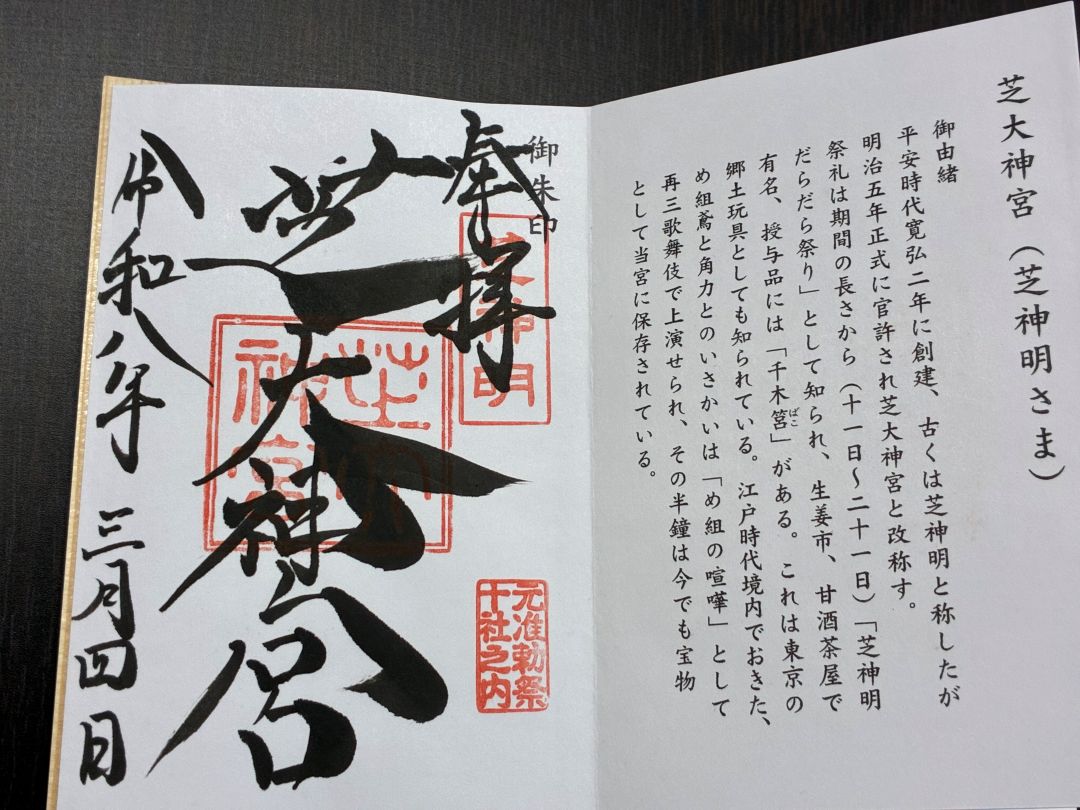 芝大神宮（芝神明さま）
御由緒
平安時代寛弘二年に創建、古くは芝神明と称したが
明治五年正式に官許され芝大神宮と改称す。
祭礼は期間の長さから（十一日～二十一日）「芝神明
だらだら祭り」として知られ、生姜市、甘酒茶屋で
有名、授与品には「千木筥」がある。これは東京の
ばこ
郷土玩具としても知られている。江戸時代境内でおきた、
め組鳶と角力とのいさかいは「め組の喧嘩」として
再三歌舞伎で上演せられ、その半鐘は今でも宝物
として当宮に保存されている。
御朱印
奉拝
芝神明
元准勅祭
十社之内
芝大神宮
芝大
神宮
令和八年 三月四日